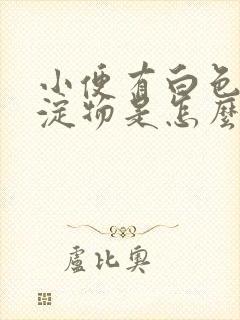 小便有白色
淀物是怎麼
盧比奧